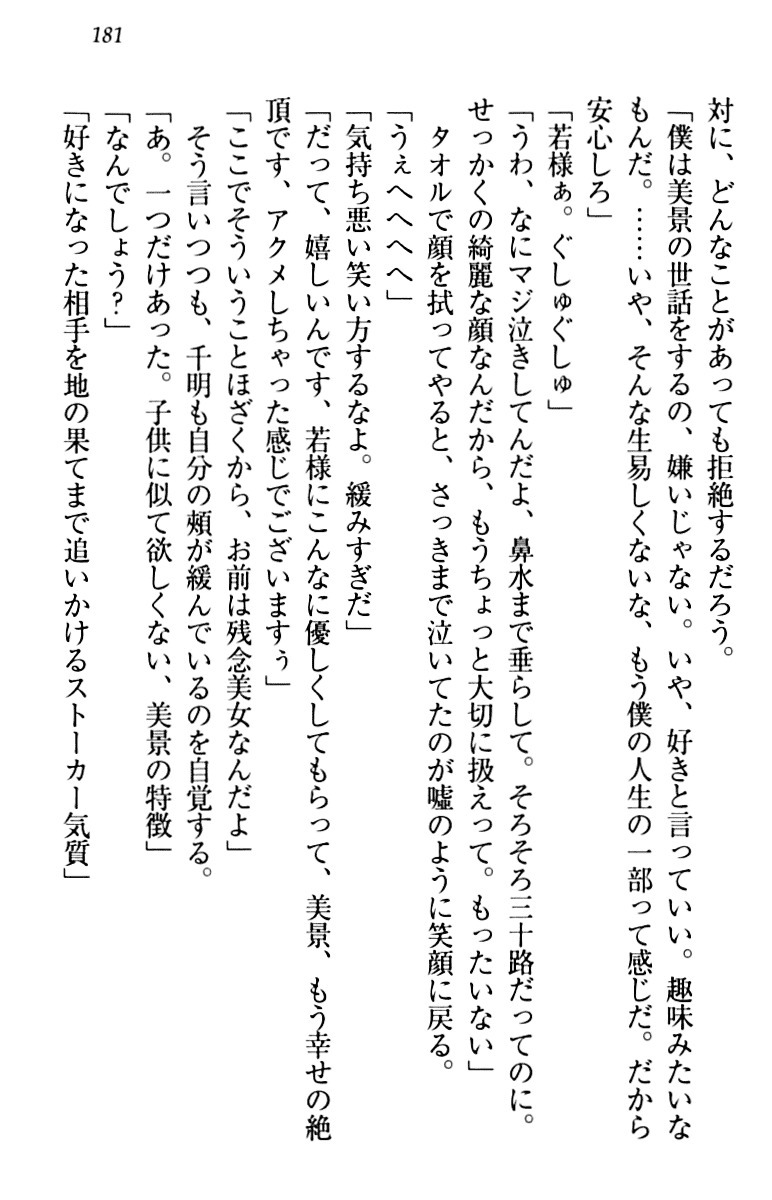 181
対に、どんなことがあっても拒絶するだろう。
「僕は美景の世話をするの、嫌いじゃない。いや、好きと言っていい。趣味みたいな
もんだ。……いや、そんな生易しくないな、もう僕の人生の一部って感じだ。だから
安心しろ」
「若様ぁ。ぐしゅぐしゅ」
「うわ、なにマジ泣きしてんだよ、鼻水まで垂らして。そろそろ三十路だってのに。
せっかくの綺麗な顔なんだから、もうちょっと大切に扱えって。もったいない」
タオルで顔を拭ってやると、さっきまで泣いてたのが嘘のように笑顔に戻る。
「うぇへへへへ」
「気持ち悪い笑い方するなよ。緩みすぎだ」
「だって、嬉しいんです、若様にこんなに優しくしてもらって、美景、もう幸せの絶
頂です、アクメしちゃった感じでございますぅ」
「ここでそういうことほざくから、お前は残念美女なんだよ」
そう言いつつも、千明も自分の頬が緩んでいるのを自覚する。
「あ。一つだけあった。子供に似て欲しくない、美景の特徴」
「なんでしょう?」
「好きになった相手を地の果てまで追いかけるストーカー気質」